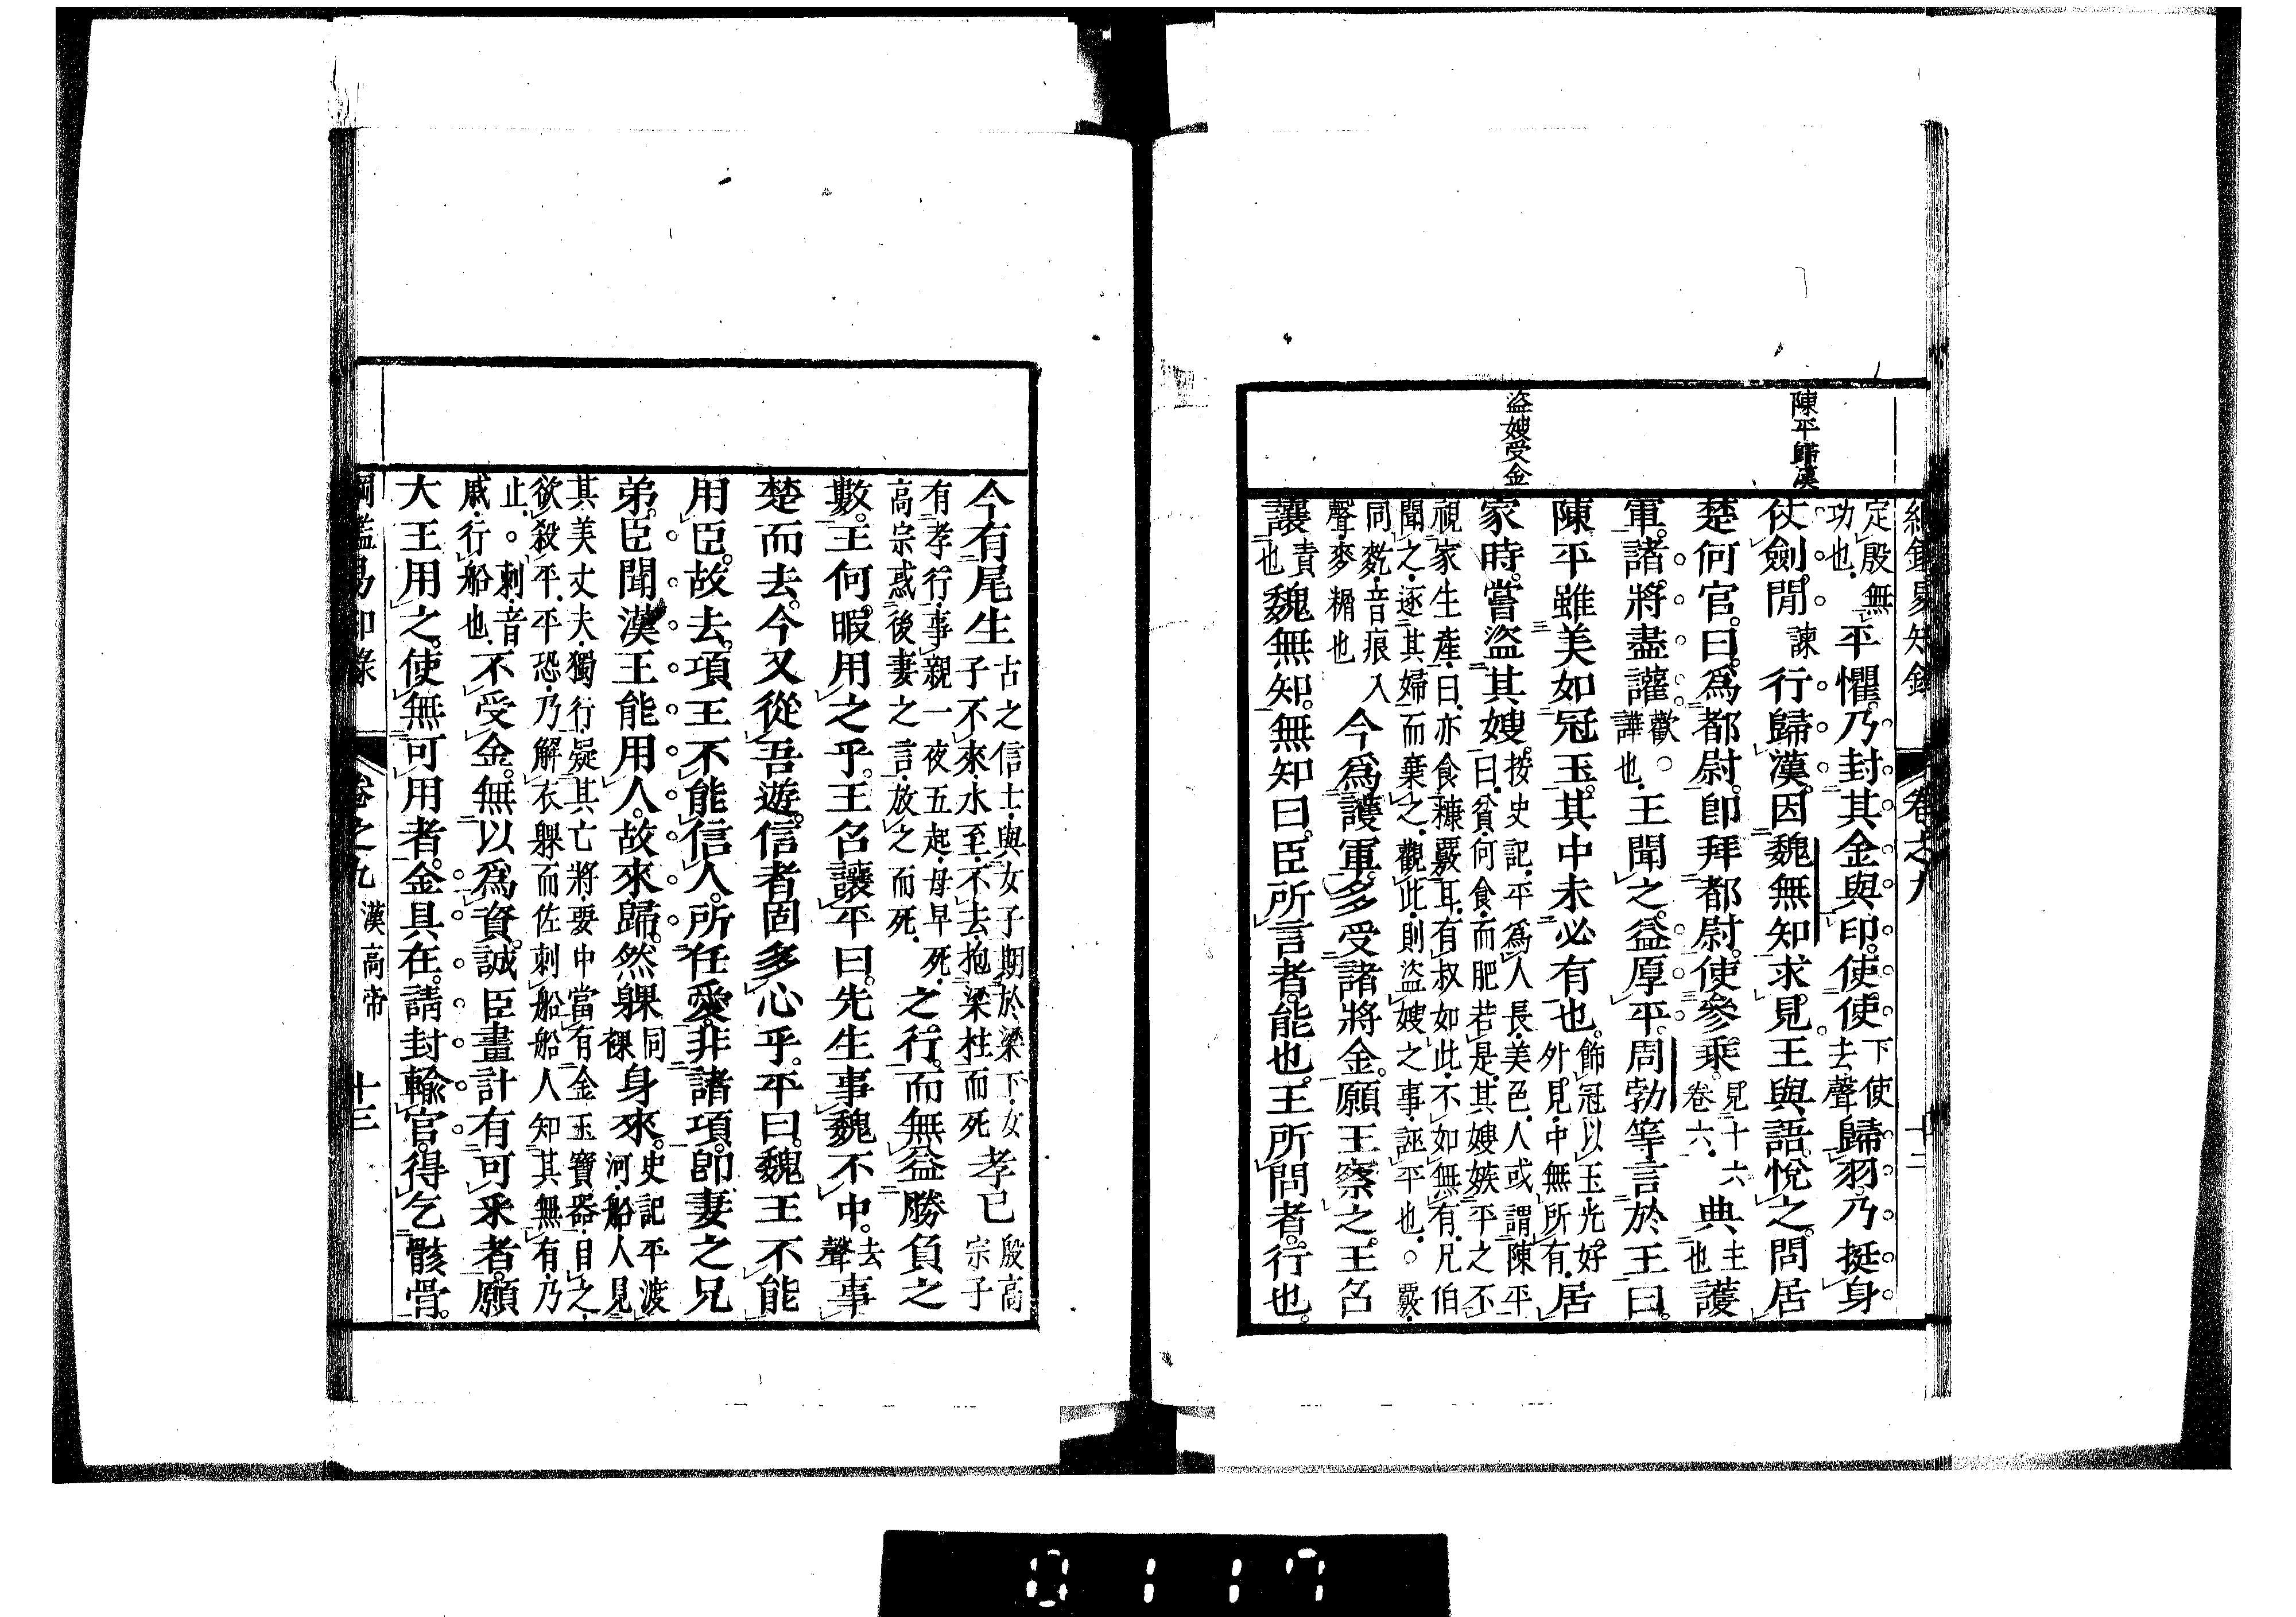 陳平歸漢
盜嫂受金
定殷無
功也
平懼。乃封其金與印。使使
下使
去聲
歸羽。乃挺身
仗劍。閒
諫
行歸漢。因魏無知求見。王與語。悅之。問居
楚何官。曰。爲都尉。卽拜都尉。使參乘。
見十六
卷六
典
主
也
護
軍。諸將盡讙
歡○
譁也
王聞之。益厚平。周勃等言於王曰。
陳平雖美如冠玉。其中未必有也。
飾冠以玉光好
外見中無所有
居
家時。嘗盜其嫂。
按史記平爲人長美色人或謂陳平
曰貧何食而肥若是其嫂嫉平之不
視家生產曰亦食糠覈耳有叔如此不如無有兄伯
聞之逐其婦而棄之觀此則盜嫂之事誣平也○覈
同麧音痕入
聲麥糏也
今爲護軍。多受諸將金。願王察之。王召
讓
責
也
魏無知。無知曰。臣所言者。能也。王所問者。行也。
綱鑑易知錄 卷之九 十二
今有尾生
古之信士與女子期於梁下女
子不來水至不去抱梁柱而死
孝已
殷高
宗子
有孝行事親一夜五起母早死
高宗惑後妻之言放之而死
之行。而無益勝負之
數。王何暇用之乎。王召讓平曰。先生事魏不中。
去
聲
事
楚而去。今又從吾遊。信者固多心乎。平曰。魏王不能
用臣。故去。項王不能信人。所任愛。非諸項。卽妻之兄
弟。臣聞漢王能用人。故來歸。然躶
同
裸
身來。
史記平渡
河船人見
其美丈夫獨行疑其亡將要中當有金玉寶器目之
欲殺平平恐乃解衣躶而佐刺船船人知其無有乃
止○刺音
戚行船也
不受金。無以爲資。誠臣畫計有可采者。願
大王用之。使無可用者。金具在。請封輸官。得乞骸骨。
綱鑑易知錄 卷之九 漢高帝 十三
0117